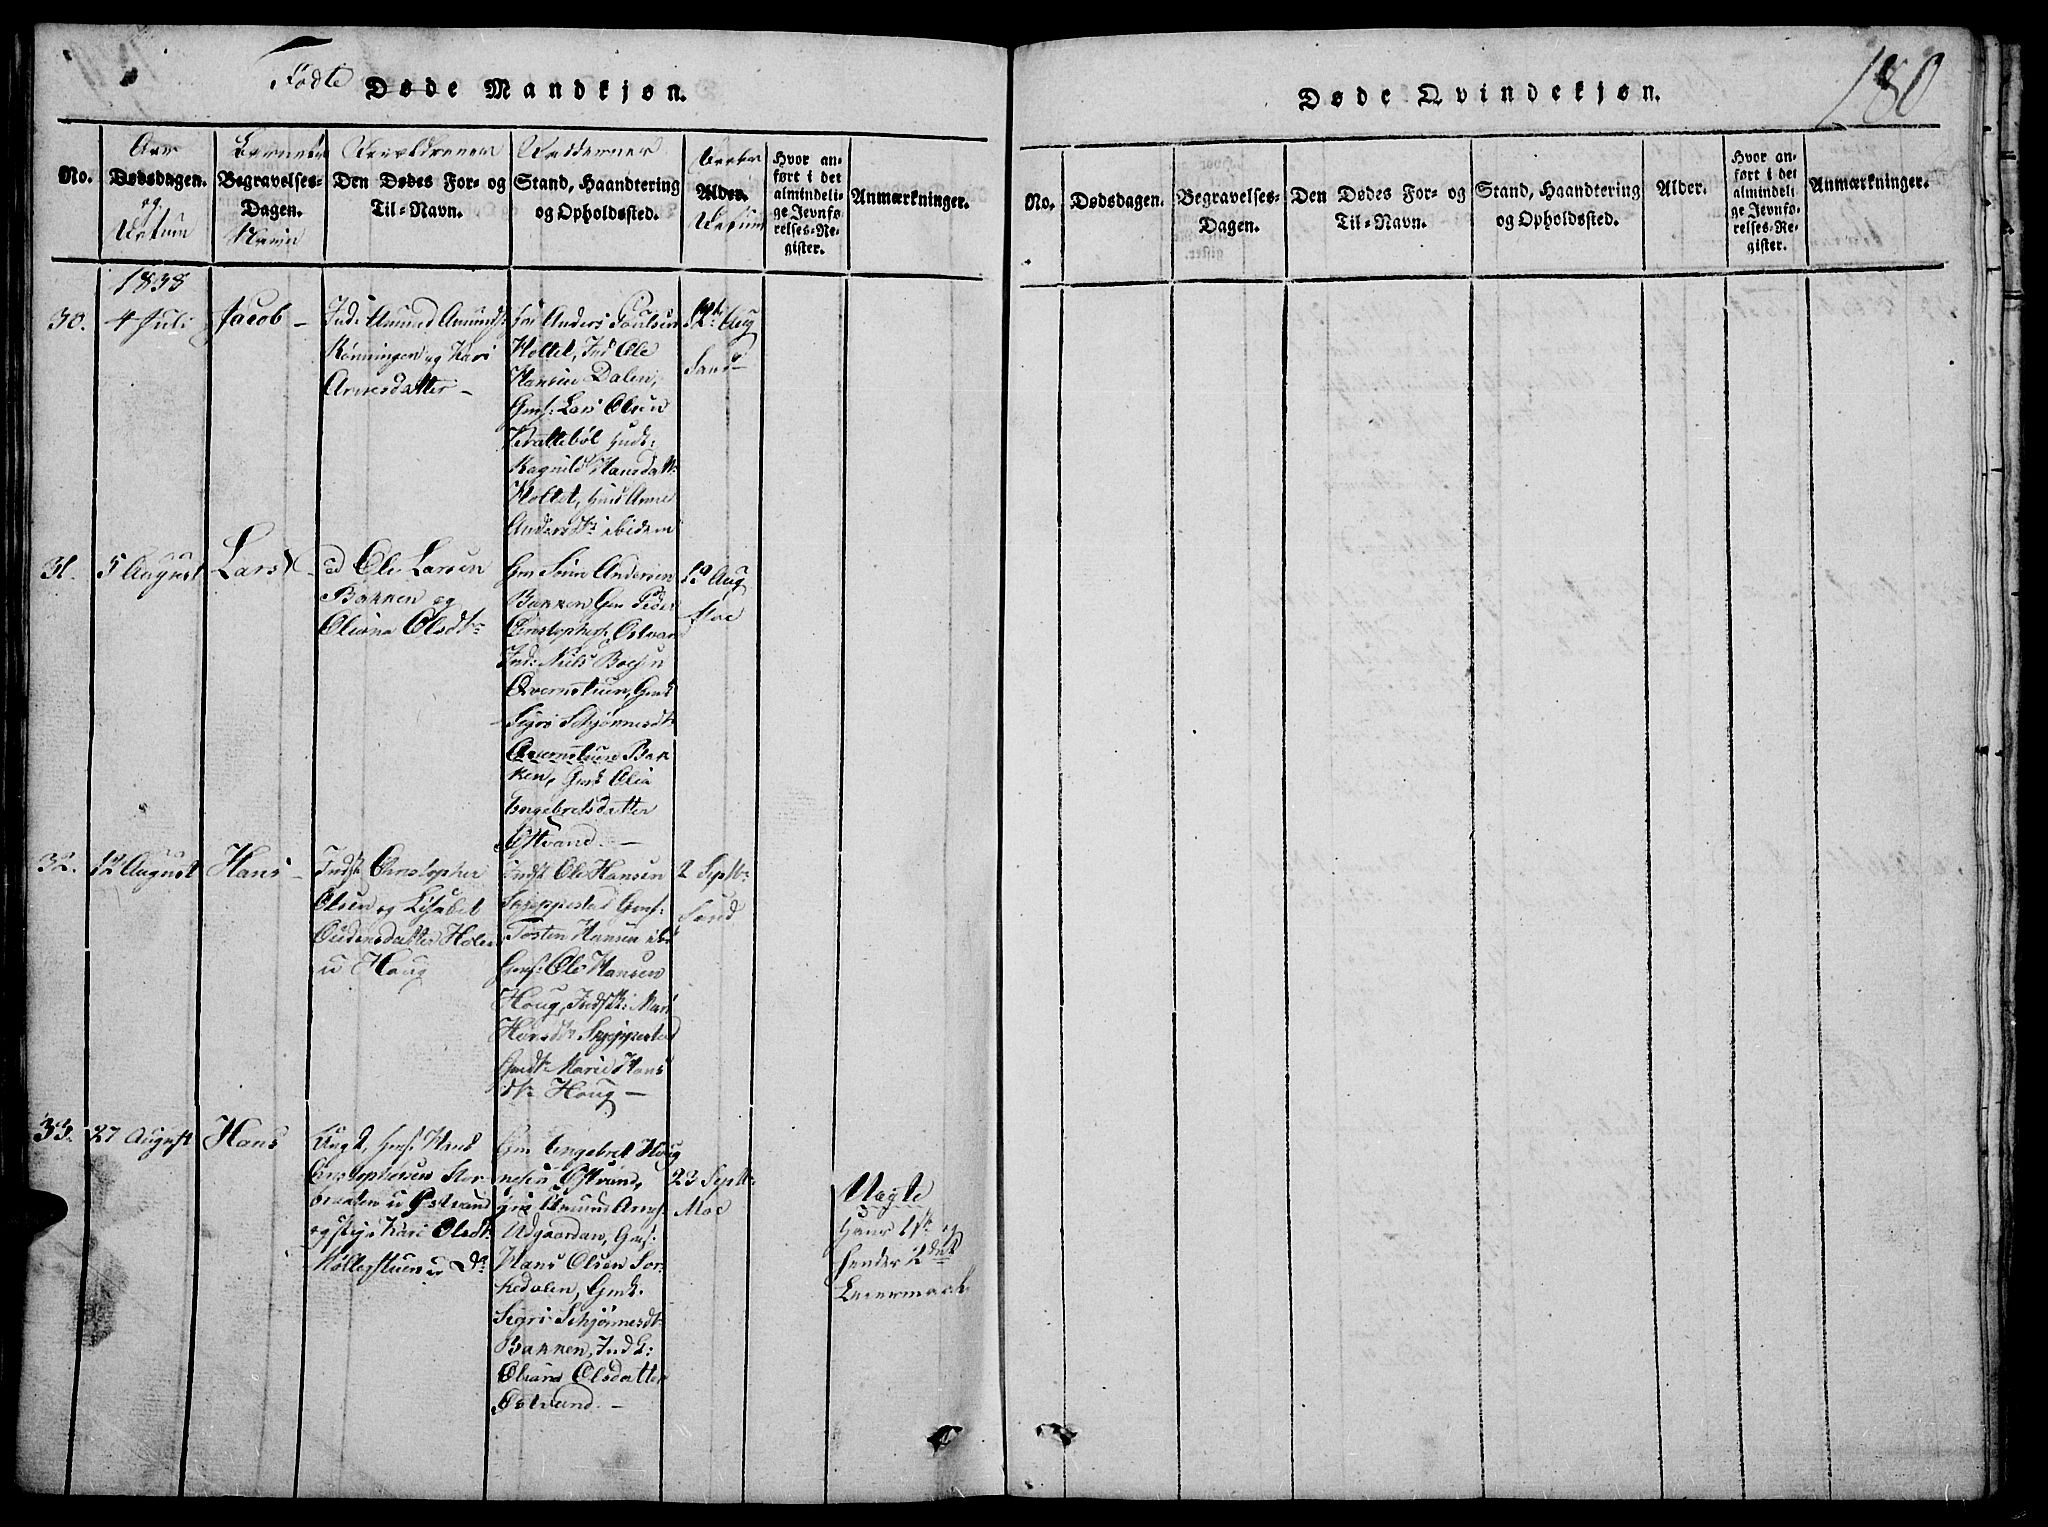 Fødte
Døde Mandkjøn.
Aar
og
Datum
Barnets
Navn
Forældrenes
Faddernes
No.
Dødsdagen.
Begravelses-
Dagen.
Den Dødes For- og
Til-Navn.
Stand, Haandtering
og Opholdssted.
Alder.
Datum
Hvor an-
ført i det
almindeli-
ge Jevnfø-
relses-Re-
gister.
Anmærkninger.
1838
30.
4 Juli
Jacob –
Ind: Amund Amunds:
Rønningen og Kari
Arnesdatter –
Anders Poulsen
Holtet, Ind Ole
Hansen Dalen,
Gmf: Lars Olsen
Kratteböl
Ragnild Hansdatt:
Holtet, Anne
Andersdtr ibidem
12te Aug
Sand
31.
5 August
Lars
Ole Larsen
Bakken og
Oliana Olsdtr
Andersen
Bakken, Gm Peder
Christophers Ostvan
Ind: Niels Boesen
Qvernstuen, Gmk
Sigri Schjønnesdtr
Qvernstuen Bak
ken, Gmk Olia
Engebretsdatter
Østvand. –
19 Aug
Moe
32.
12 August
Hans –
Indst Christopher
Olsen og Lisabet
Oudensdatter Holen
u Houg
Indst Ole Hansen
Skjeppestad Gmf:
Tosten Hansen ibi
Gmf: Ole Hansen
Houg, Indstk: Mari
Hansdtr Skjeppestad
Marie Hans
dtr Houg –
2 Septbr
Sand
33.
27 August
Hans
Ungk, Gmf. Hans
Christophersen Stor
braaten u Østvand
og Pige Kari Olsdtr
Møllerstuen u Do
Gm Engebret Houg
nesen Østvand,
Amund Arnes:
Udgaarden, Gmf:
Hans Olsen Sor
kedalen, Gmk:
Sigri Schjønnesdtr
Bakken, Indk:
Oliana Olsdatter
Østvand. –
23 Septbr
Moe
Uægte
Hans 1ste og
hendes 2det
Leiermaal
Døde Qvindekjøn.
180
No.
Dødsdagen.
Begravelses-
Dagen.
Den Dødes For- og
Til-Navn.
Stand, Haandtering
og Opholdssted.
Alder.
Hvor an-
ført i det
almindeli-
ge Jevnfø-
relses-Re-
gister.
Anmærkninger.